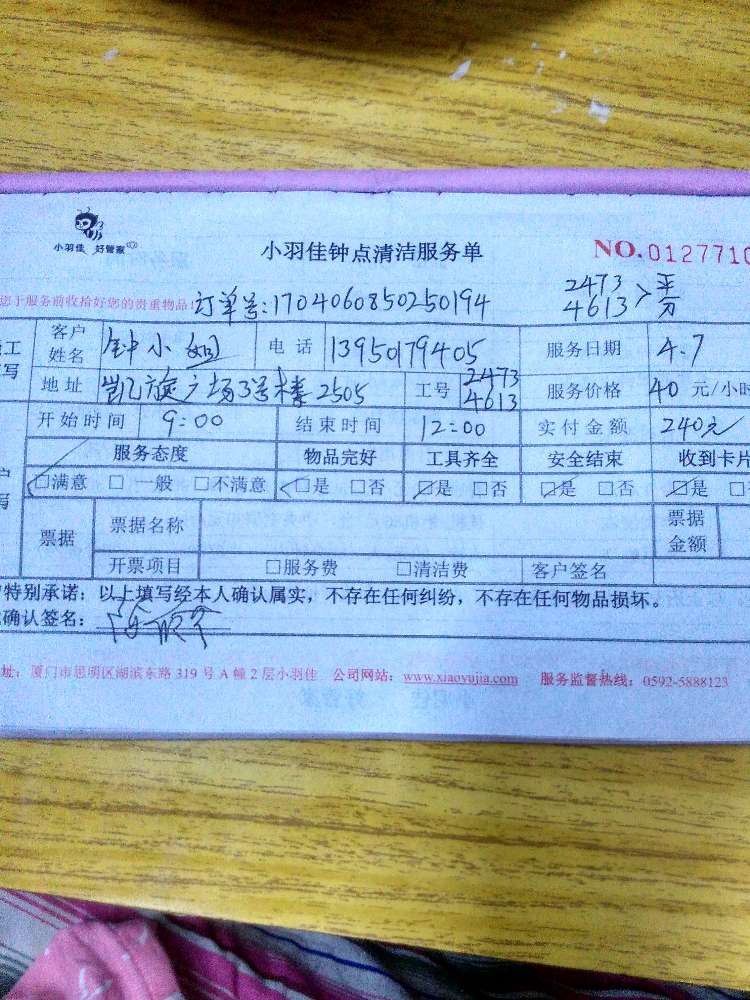 小羽佳 好管家
小羽佳钟点清洁服务单
NO.0127710
您于服务前收拾好您的贵重物品!
订单号:1704060850250194
2473
4613 > 平分
工
写
客户姓名 钟小姐 电话 13950179405 服务日期 4.7
地址 凯旋广场3号楼2505 工号 2473 4613 服务价格 40 元/小时
开始时间 9:00 结束时间 12:00 实付金额 240元
服务态度 物品完好 工具齐全 安全结束 收到卡片
户
写
□满意 □ 一般 □不满意 □是 □否 □是 □否 □是 □否 □是
票据 票据名称 票据金额
开票项目 □服务费 □清洁费 客户签名
特别承诺:以上填写经本人确认属实,不存在任何纠纷,不存在任何物品损坏。
确认签名:
址:厦门市思明区湖滨东路 319 号 A 幢 2 层小羽佳 公司网站:www.xiaoyujia.com 服务监督热线:0592-5888123